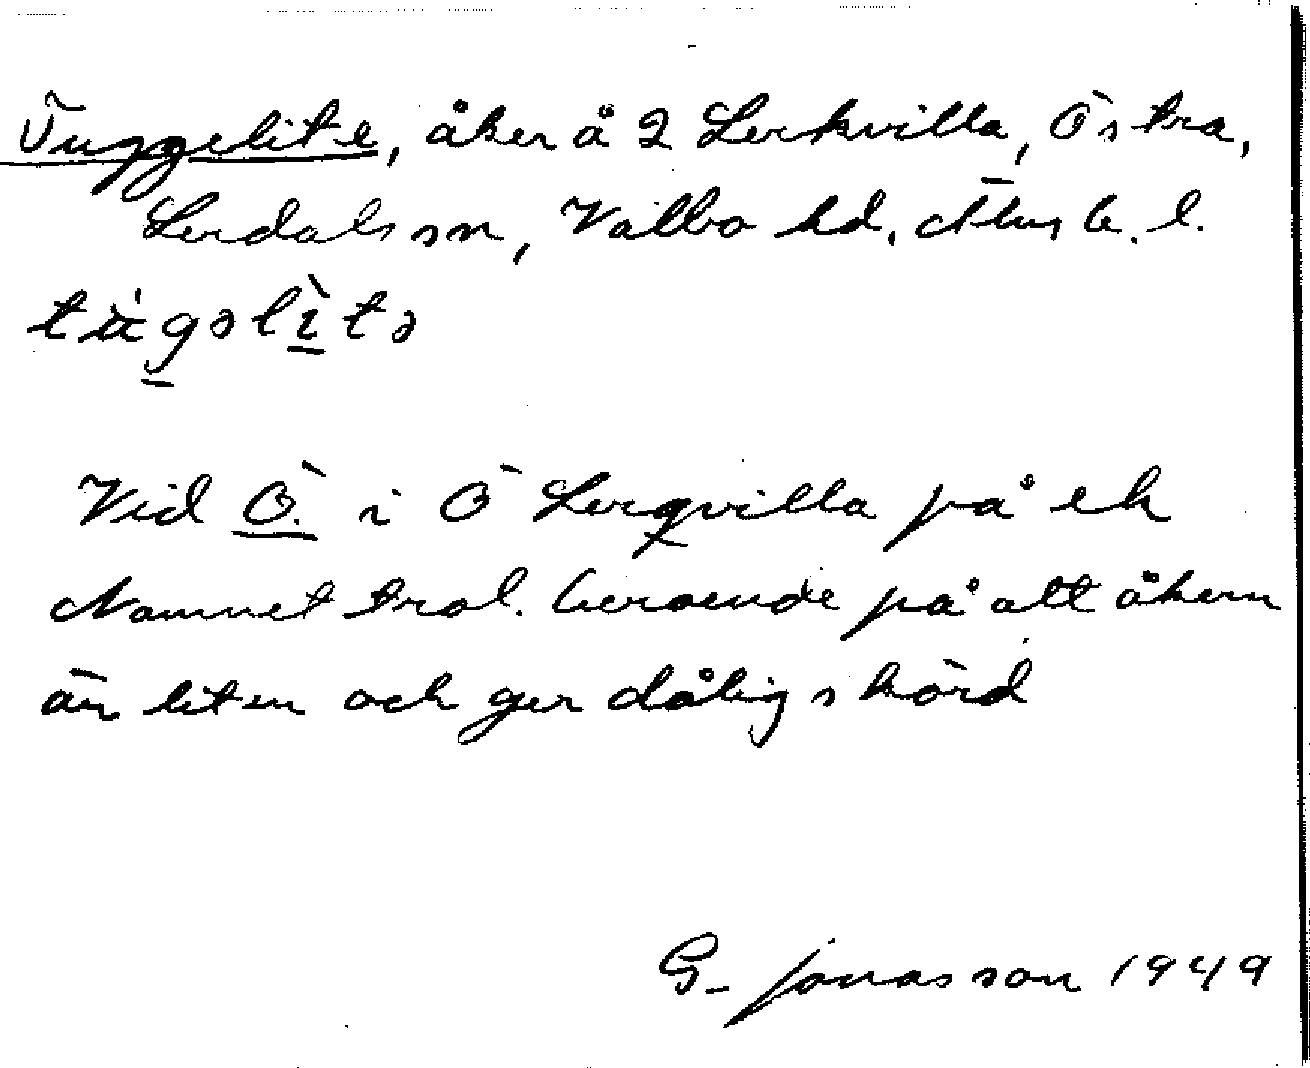 Tuggelite, åker å 2 Lerkvilla, Östra,
Lerdals sn, Valbo hd, Älvsb. l.
tùgəlìtə
Vid Ö. i Ö Lerqvilla på ek
Namnet trol. beroende på att åkern
är liten och ger dålig skörd
G. Jonasson 1949